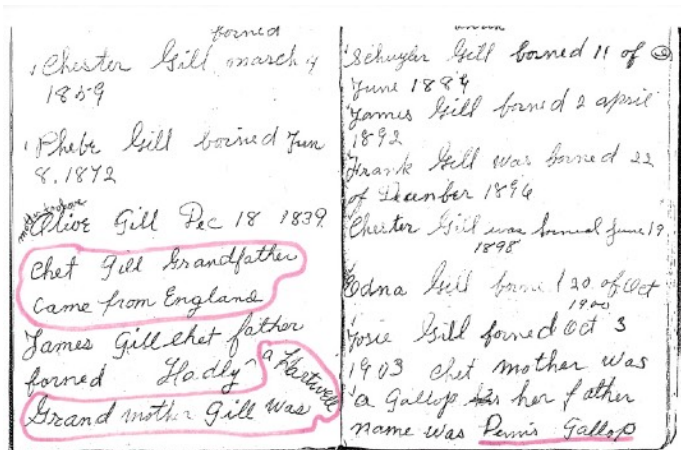 borned
Chester Gill march 4
1859
Phebe Gill borned Jun
8. 1872
mother to above
Olive Gill Dec 18 1839
Chet Gill Grandfather
came from England
James Gill chet father
borned Hadly
Grand mother Gill was a Hartwell
Schuyler Gill borned 11 of
June 1889
James Gill borned 2 april
1892
Frank Gill was borned 22
of December 1896
Chester Gill was borned June 19
1898
Edna Gill borne 20 of Oct
1900
Josie Gill borned Oct 3
1903 chet mother was
a Gallop her father
name was Gallop